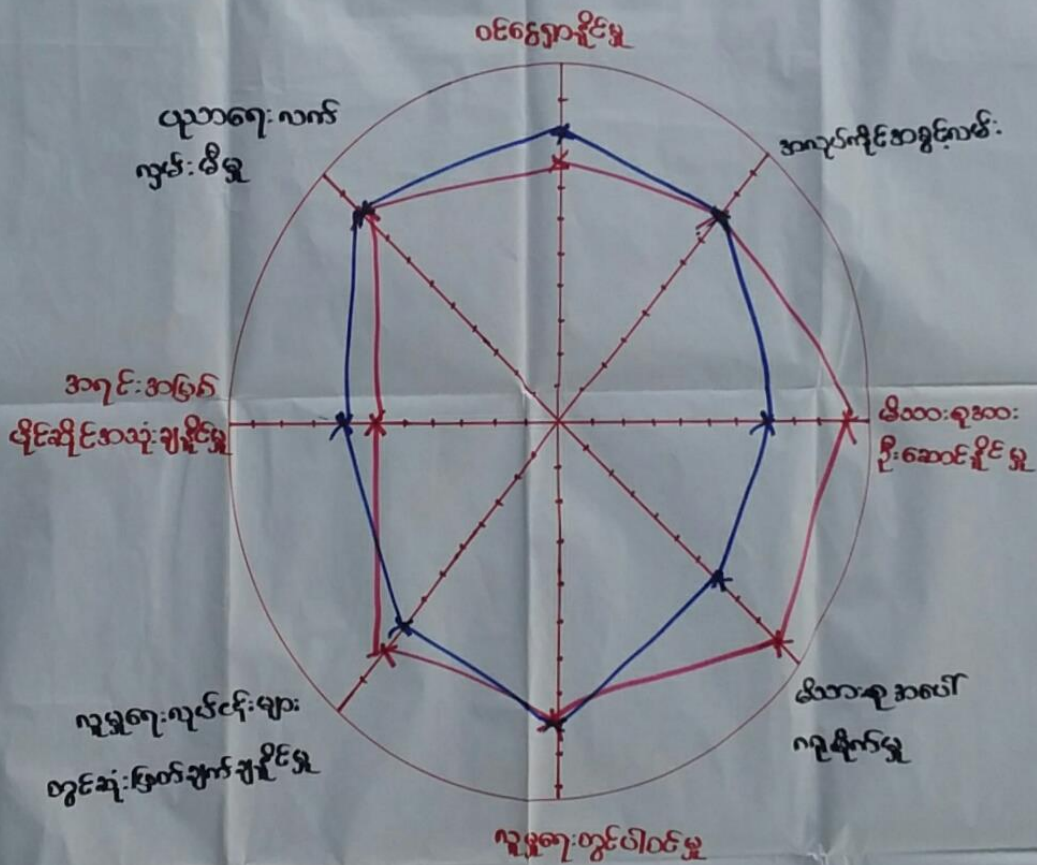 ဝင်ငွေရှာနိုင်မှု
အလုပ်ကိုင်အခွင့်လမ်း
မိသားစုအား
ဦးဆောင်နိုင်မှု
မိသားစုအပေါ်
ဂရုစိုက်မှု
လူမှုရေးတွင်ပါဝင်မှု
လူမှုရေးလုပ်ငန်းများ
တွင်ဆုံးဖြတ်ချက်ချနိုင်မှု
အရင်းအမြစ်
ပိုင်ဆိုင်အသုံးချနိုင်မှု
ပညာရေးလက်
လှမ်းမီမှု